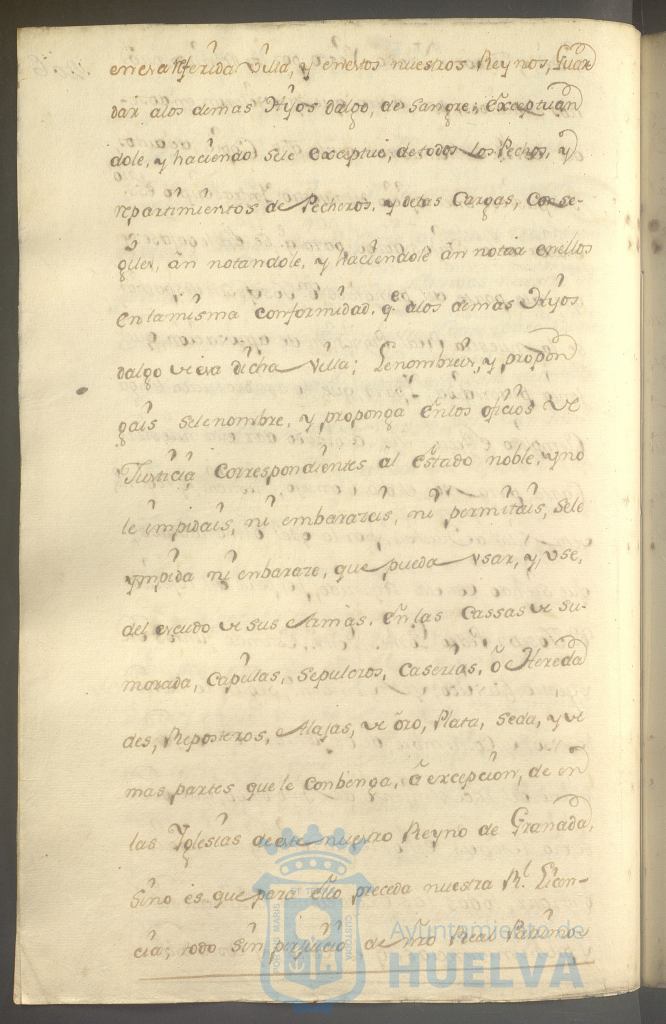 en esa Referida Villa, y en estos nuestros Reynos, Guar
dar a los demas Hijos dalgo, de Sangre; exceptuan
dole, y haciendo sele exceptue, de todos los Pechos, y
repartimientos de Pecheros, y de las Cargas, Conse-
giles, ân notandole, y haciendole ân notar en ellos
en la misma conformidad, q.e a los demas Hijos
dalgo de esa dicha Villa; Le nombreis, y propon
gais sele nombre, y proponga en los oficios de
Justicia correspondientes al estado noble, y no
le impidais, ni embaraceis, ni permitais, sele
ympida ni enbaraze, que pueda vsar, y vse,
del escudo de sus Armas, en las Cassas de su-
morada, Capillas, Sepulcros, Caserias, ô Hereda
des, Reposteros, Alajas, de ôro, Plata, Seda, y de
mas partes que le Conbenga, â excepcion, de en
las Yglesias de este nuestro Reyno de Granada,
sino es que para ello preceda nuestra R.l Lian-
cia; todo sin perjuicio de nro Real Patrimo
PORTUS MARIS ET TERRE CUSTODIA
Ayuntamiento de
HUELVA